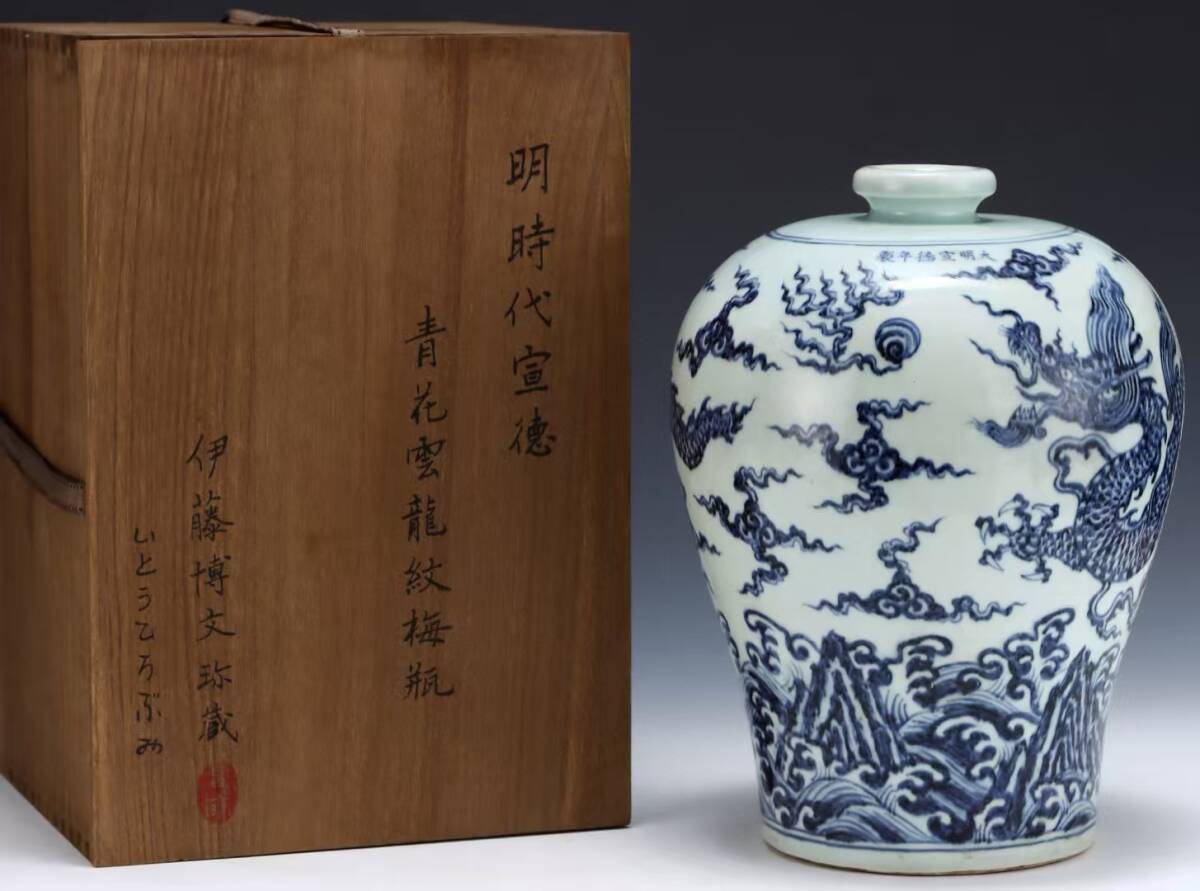 明時代宣德
青花雲龍紋梅瓶
伊藤博文珎藏
いとうひろぶみ
大明宣德年製